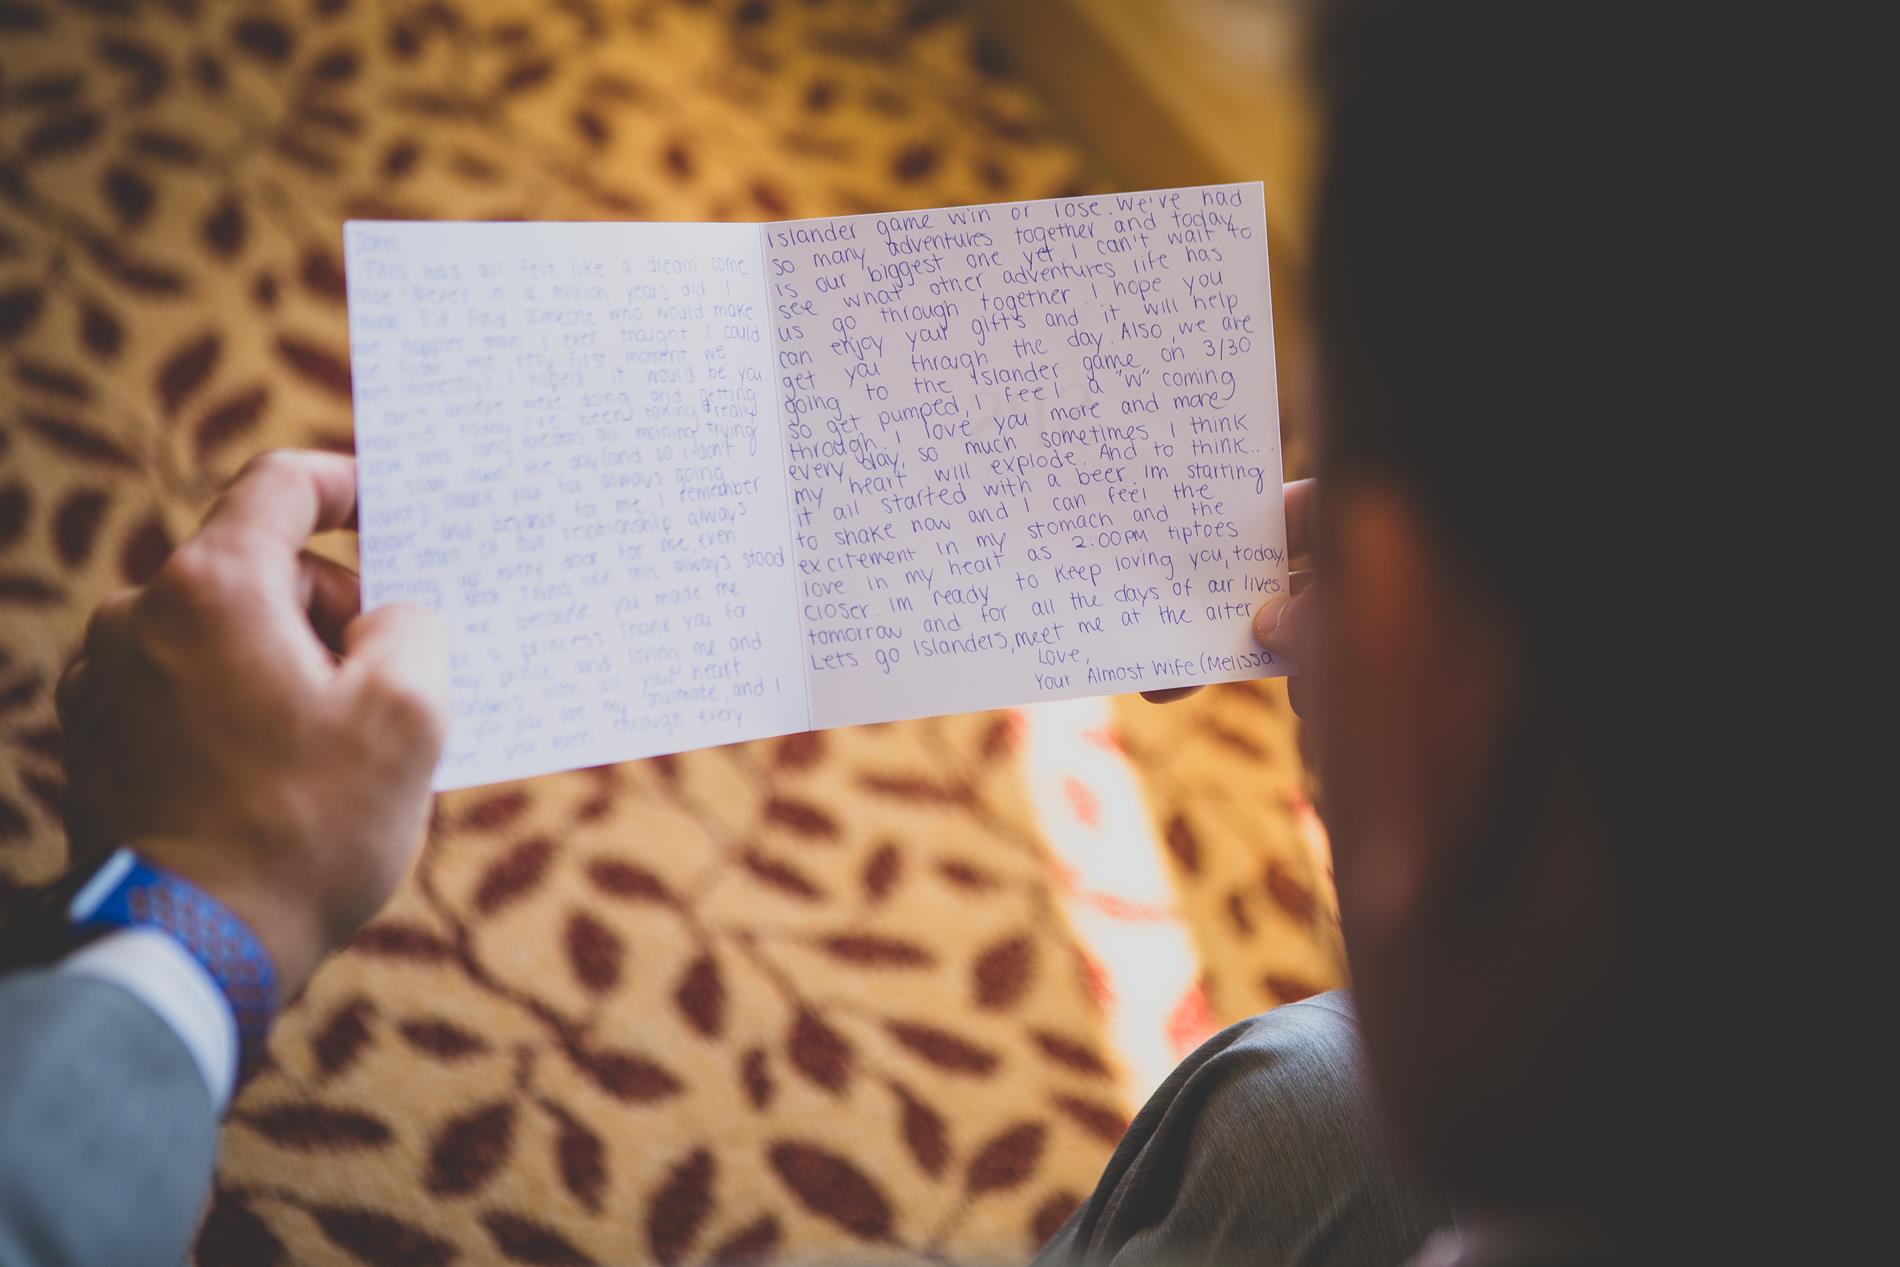 John
This has all felt like a dream come
true Never in a million years did I
think I'd find someone who would make
me happier than I ever thought I could
be from the very first moment we
met (honestly), I hoped it would be you.
I can't believe we're doing and getting
married today I've been taking really
slow and long breaths all morning trying
to "slow down" the day (and so I don't
faint) Thank you for always going
above and beyond for me I remember
the start of our relationship always
opening up every door for me, even
door thing like this always stood
me because you made me
like a princess Thank you for
my prince and loving me and
with all your heart
you you are my soulmate, and I
love you even through every
Islander game win or lose. We've had
so many adventures together and today
is our biggest one yet. I can't wait to
see what other adventures life has
us go through together I hope you
can enjoy your gifts and it will help
get you through the day. Also, we are
going to the Islander game on 3/30
so get pumped, I feel a "W" coming
through. I love you more and more
every day, so much sometimes I think
my heart will explode. And to think...
it all started with a beer. Im starting
to shake now and I can feel the
excitement in my stomach and the
love in my heart as 2:00pm tiptoes
closer. Im ready to keep loving you, today,
tomorrow and for all the days of our lives.
Lets go Islanders, meet me at the alter
Love,
Your Almost Wife (Melissa